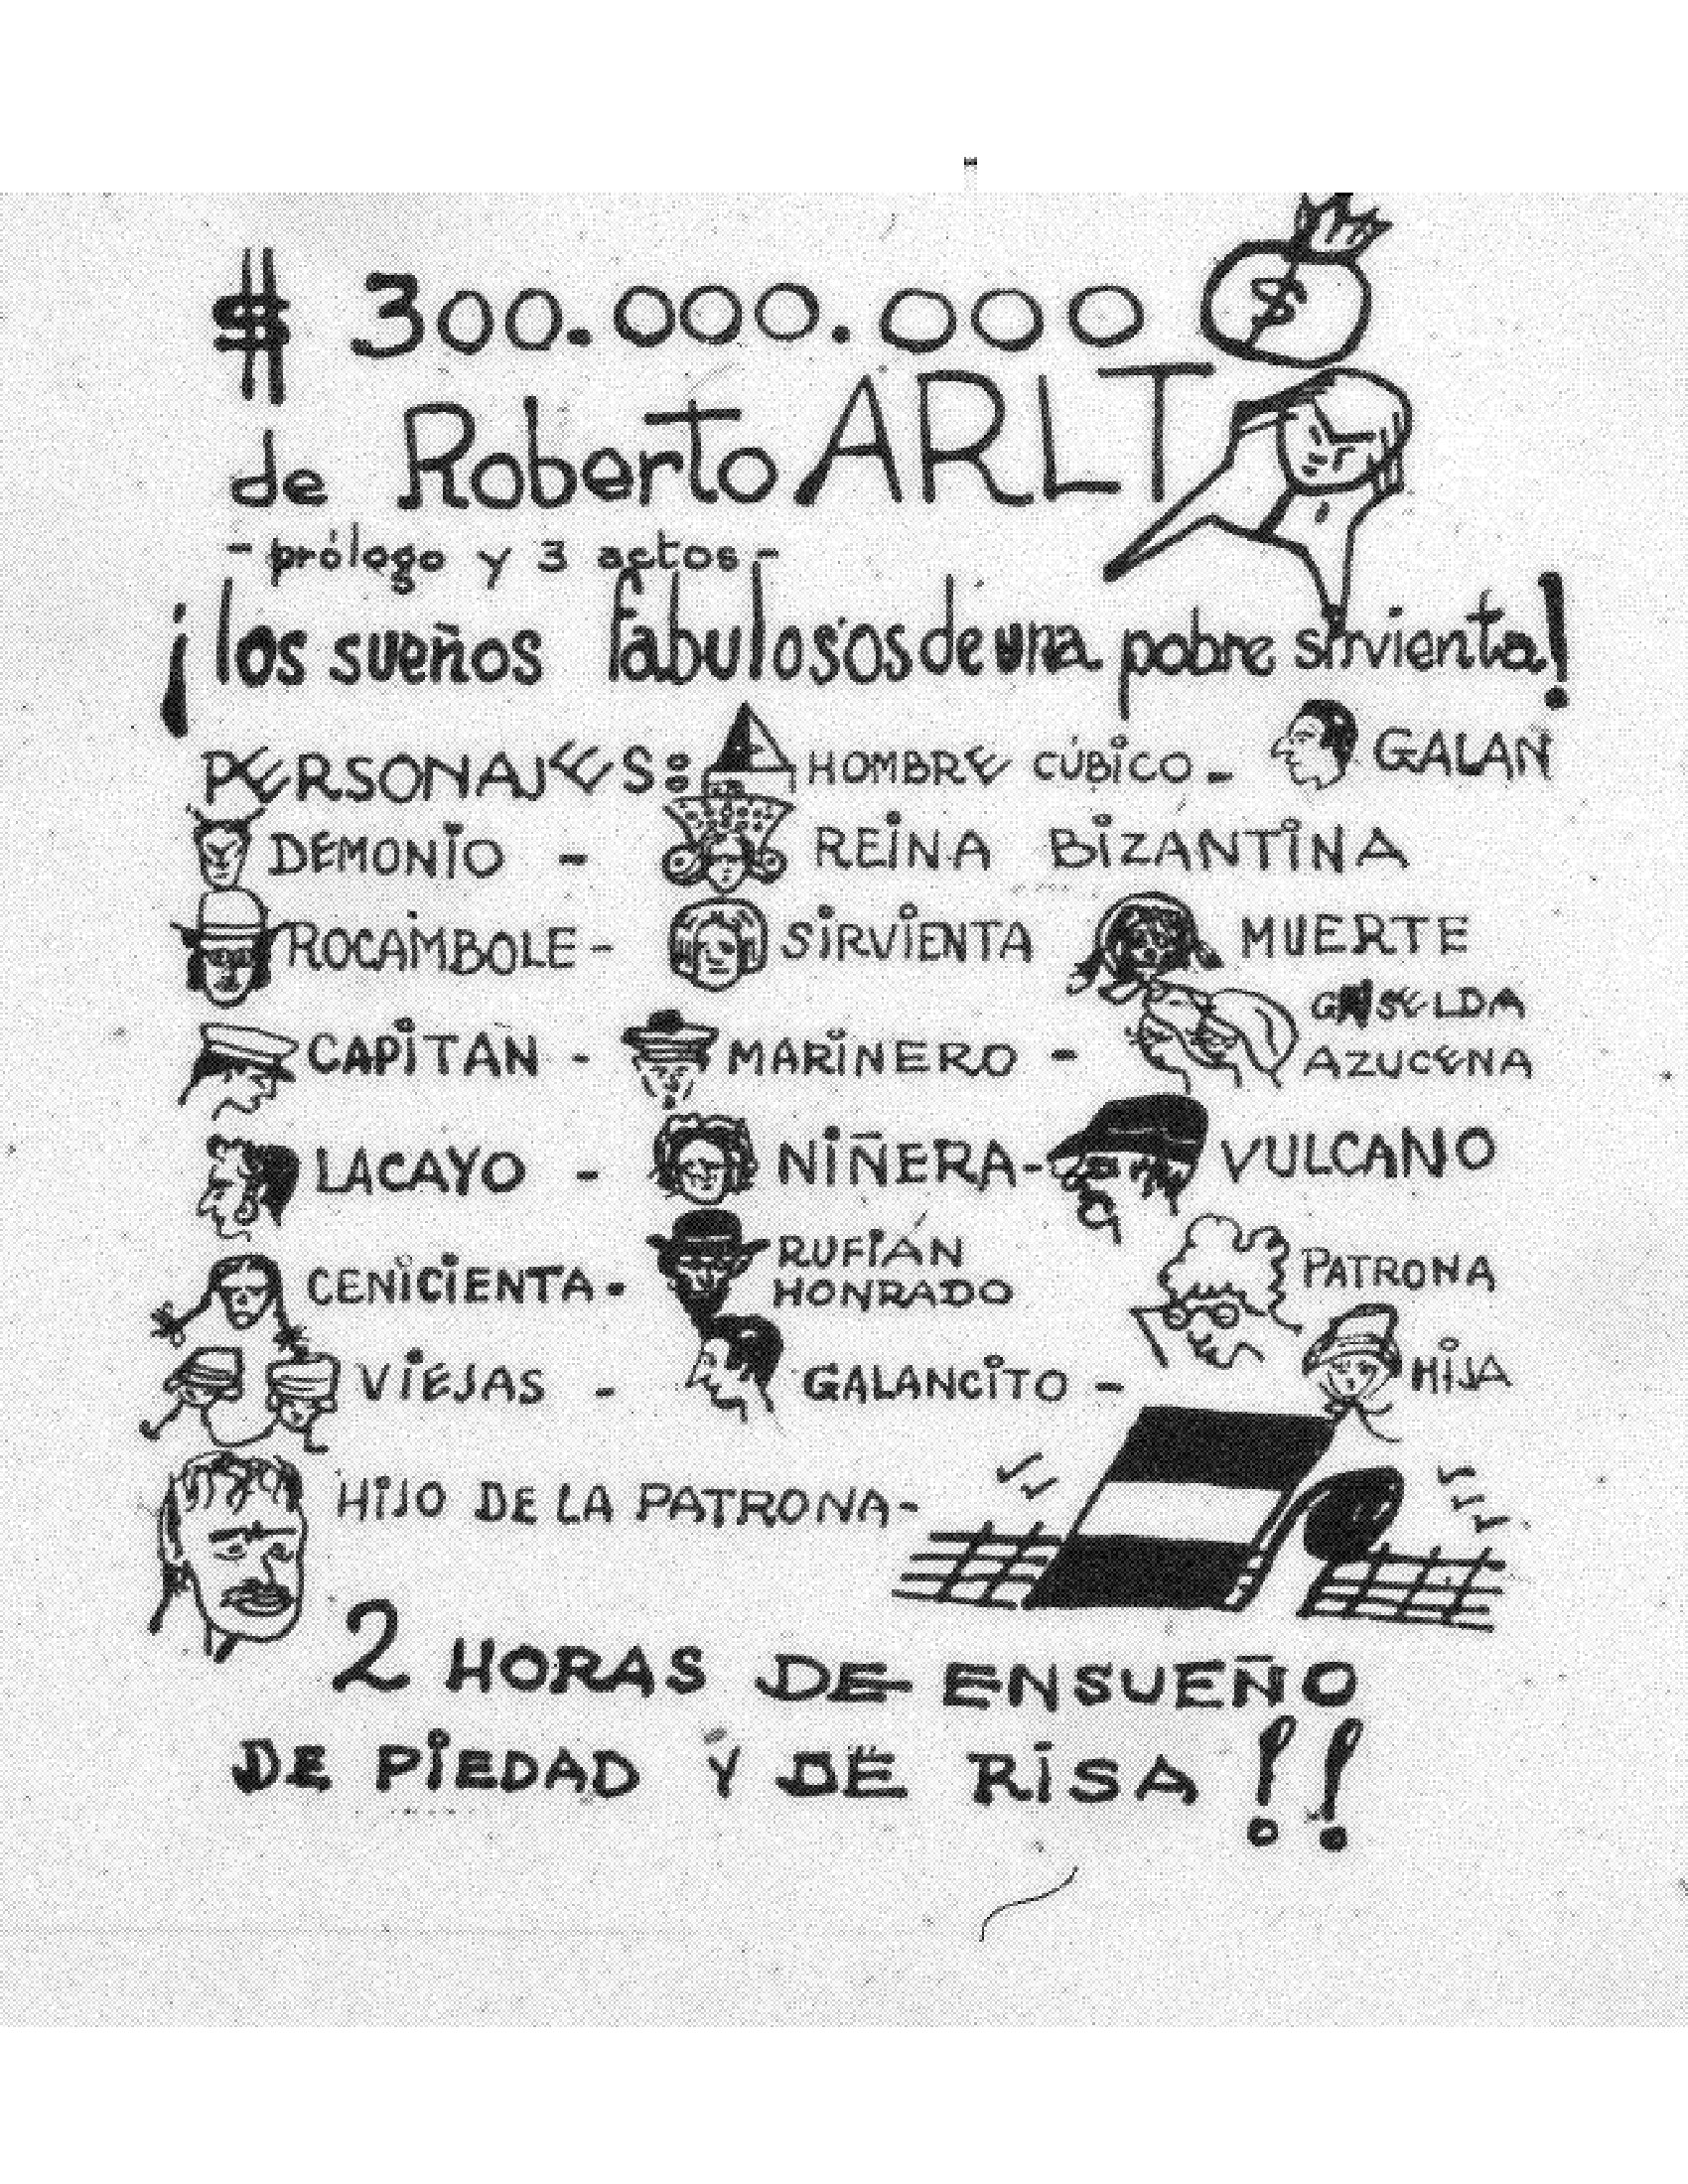 $ 300.000.000 $
de Roberto ARLT
- prólogo y 3 actos -
¡los sueños fabulosos de una pobre sirvienta!
PERSONAJES: HOMBRE CÚBICO - GALAN
DEMONIO - REINA BIZANTINA
ROCAMBOLE - SIRVIENTA MUERTE
GRISELDA
CAPITAN - MARINERO - AZUCENA
LACAYO - NIÑERA - VULCANO
CENICIENTA - RUFIÁN HONRADO PATRONA
VIEJAS - GALANCITO - HIJA
HIJO DE LA PATRONA -
2 HORAS DE ENSUEÑO
DE PIEDAD Y DE RISA !!